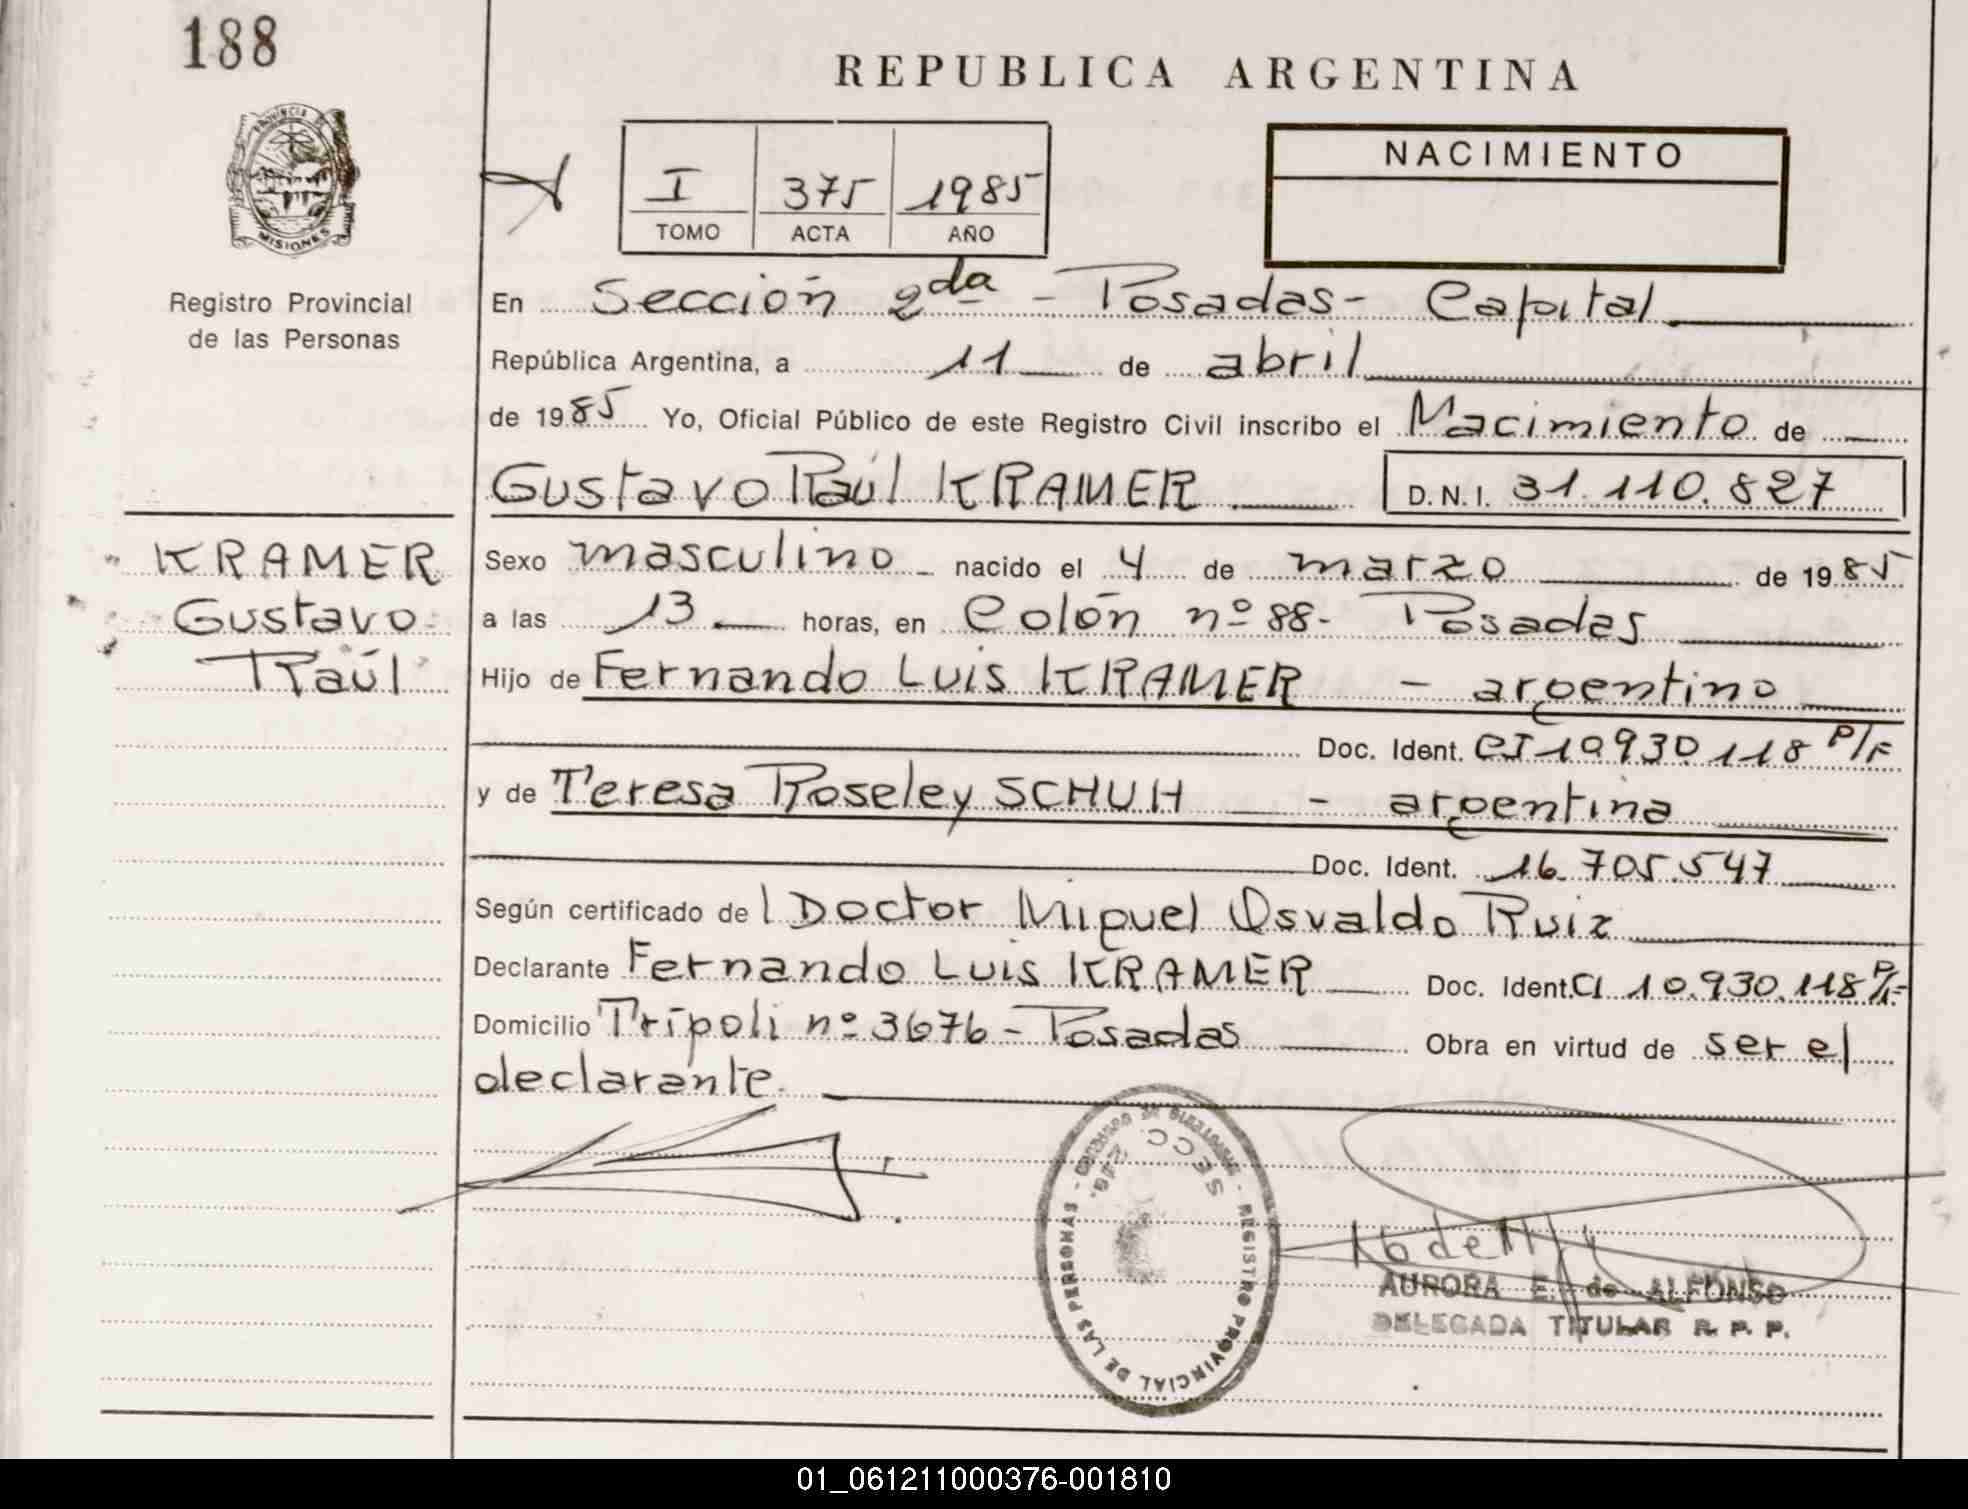 188
REPUBLICA ARGENTINA
PROVINCIA DE
MISIONES
Registro Provincial
de las Personas
I 375 1985
TOMO ACTA AÑO
NACIMIENTO
En Sección 2da - Posadas - Capital
República Argentina, a 11 de abril
de 1985 Yo, Oficial Público de este Registro Civil inscribo el Nacimiento de
Gustavo Raúl KRAMER D.N.I. 31.110.827
KRAMER
Gustavo
Raúl
Sexo masculino nacido el 4 de marzo de 1985
a las 13 horas, en Colón nº 88 - Posadas
Hijo de Fernando Luis KRAMER - argentino
Doc. Ident. CI 10.930.118 P/F
y de Teresa Roseley SCHUH - argentina
Doc. Ident. 16.705.547
Según certificado del Doctor Miguel Osvaldo Ruiz
Declarante Fernando Luis KRAMER Doc. Ident. CI 10.930.118 P/F
Domicilio Trípoli nº 3676 - Posadas Obra en virtud de ser el
declarante.
SECC. 2da.
REGISTRO PROVINCIAL DE LAS PERSONAS
AURORA E. de ALFONSO
DELEGADA TITULAR R. P. P.
01_061211000376-001810